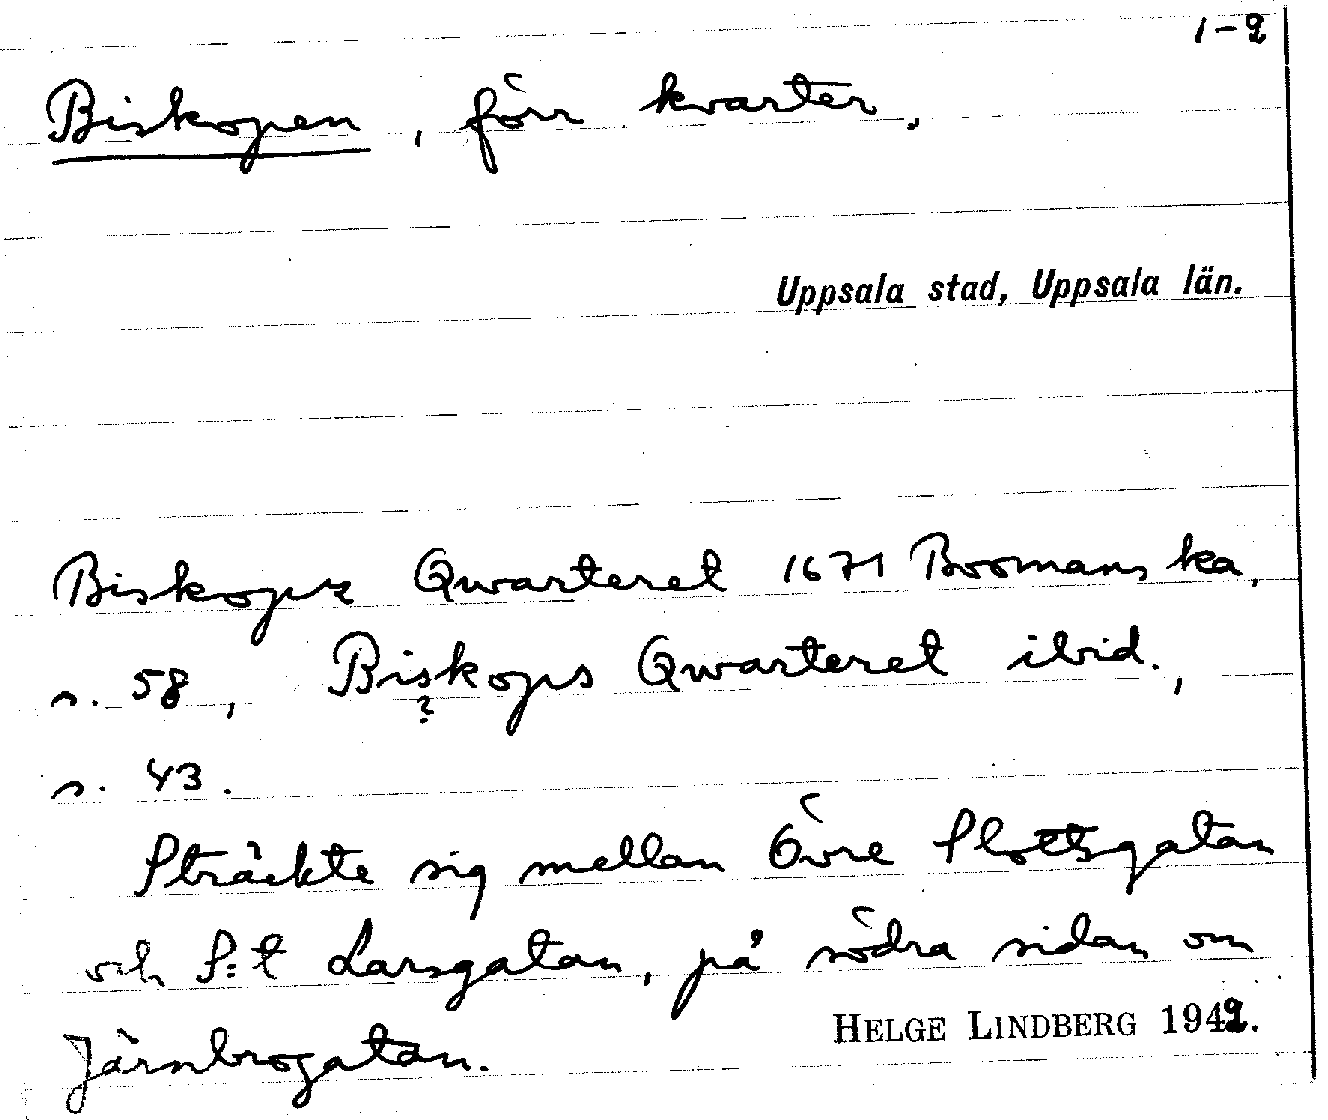 1-2
Biskopen, förr kvarter.
Uppsala stad, Uppsala län.
Biskopz Qwarteret 1671 Boomans ka.
s. 58, Biskops Qwarteret ibid.,
?
s. 43.
Sträckte sig mellan Övre Slottsgatan
och S:t Larsgatan, på södra sidan om
Järnbrogatan.
HELGE LINDBERG 1942.